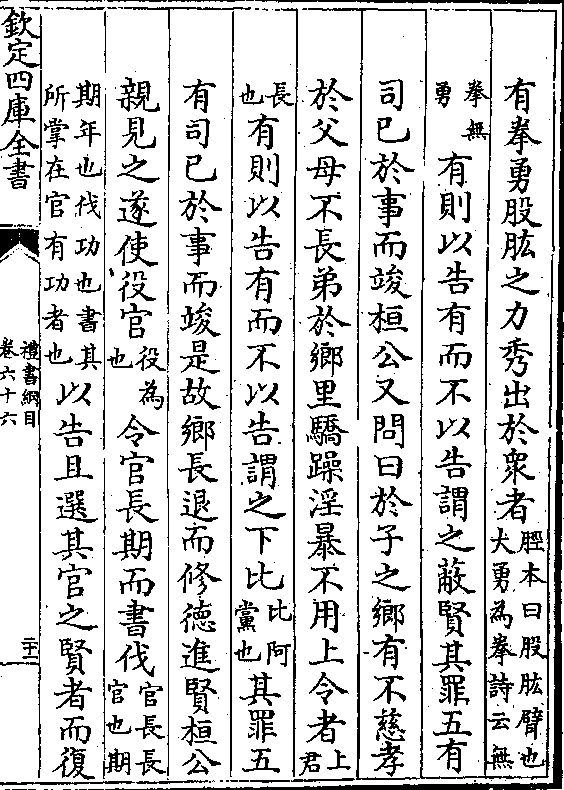 有拳勇股肱之力秀出於衆者脛本曰股肱臂也大勇為拳詩云無
拳無勇有則以告有而不以告謂之蔽賢其罪五有
司已於事而竣桓公又問曰於子之鄉有不慈孝
於父母不長弟於鄉里驕躁淫暴不用上令者上君
長也有則以告有而不以告謂之下比比阿黨也其罪五
有司已於事而竣是故鄉長退而修德進賢桓公
親見之遂使役官役為也令官長期而書伐官長長官也期
期年也伐功也書其所掌在官有功者也以告且選其官之賢者而復
欽定四庫全書
禮書綱目
卷六十六
二十一